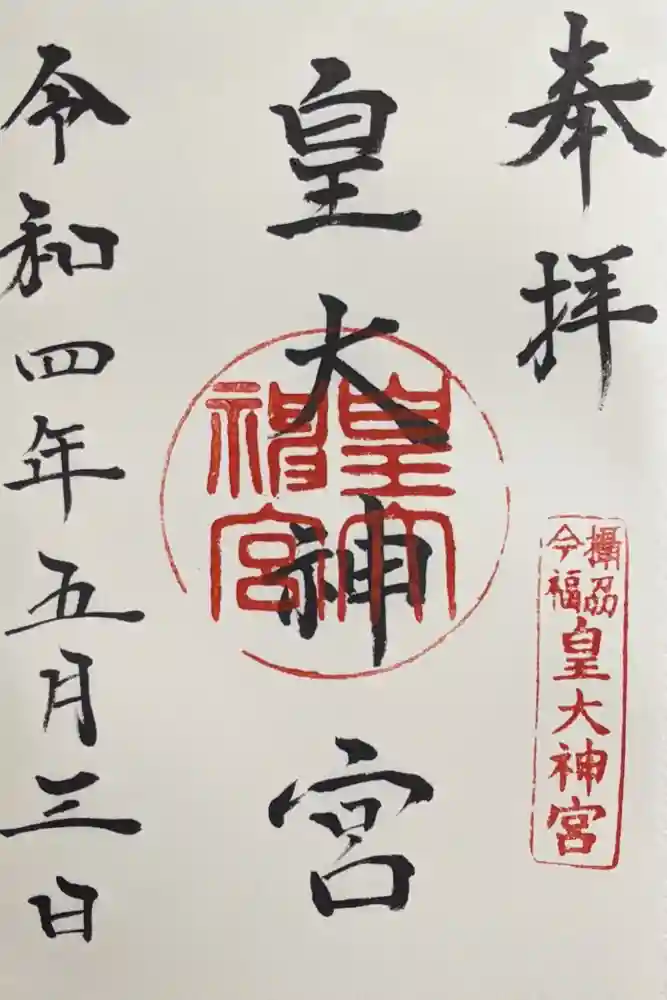 奉拝
攝劦
今福
皇大神宮
皇大神宮
皇大神宮
令和四年五月三日